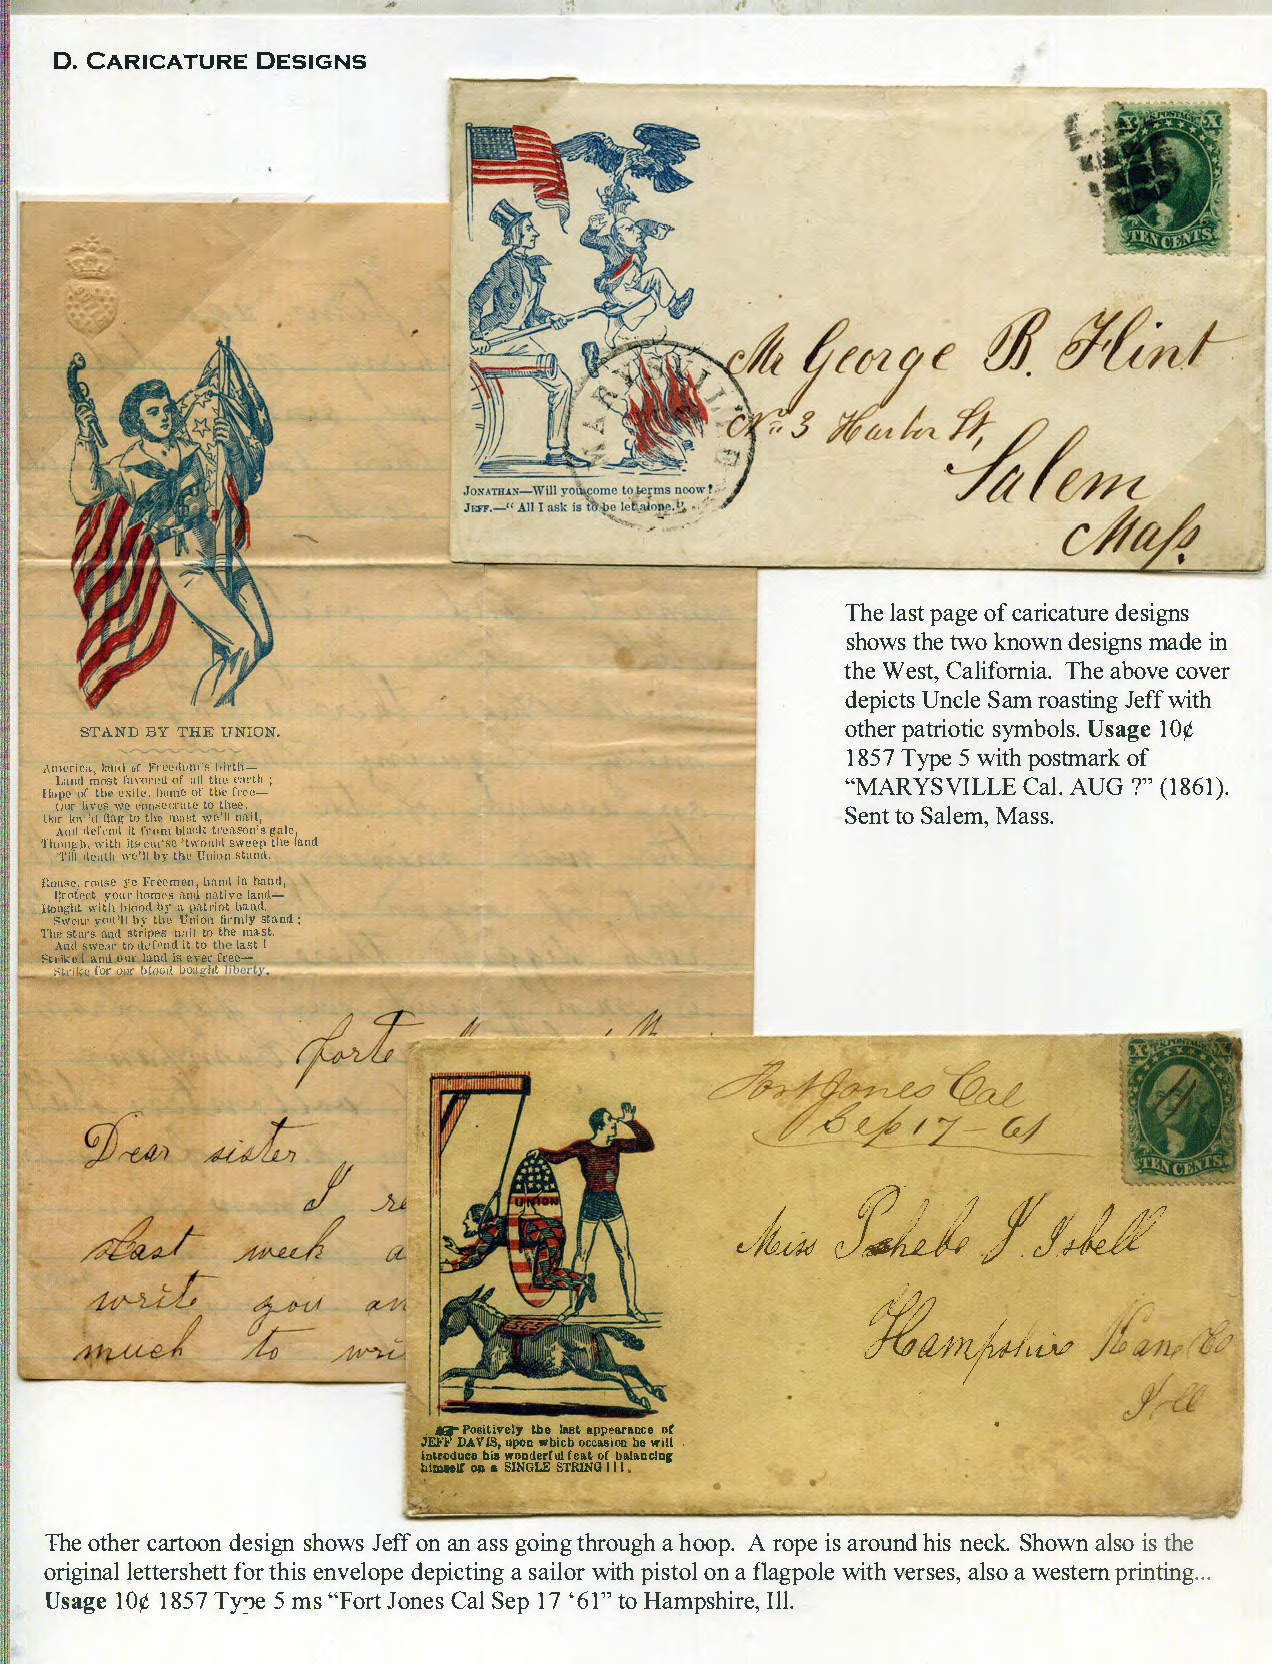 D. CARICATURE DESIGNS
U.S. POSTAGE
X X
TEN CENTS.
Mr George B. Flint
No 3 Harbor St,
Salem
Mass.
MARYSVILLE
JONATHAN—Will you come to terms noow?
JEFF.—“ All I ask is to be let alone.”
The last page of caricature designs
shows the two known designs made in
the West, California. The above cover
depicts Uncle Sam roasting Jeff with
other patriotic symbols. Usage 10¢
1857 Type 5 with postmark of
“MARYSVILLE Cal. AUG ?” (1861).
Sent to Salem, Mass.
STAND BY THE UNION.
America, land of Freedom's birth—
Land most favored of all the earth ;
Hope of the exile, home of the free—
Our lives we consecrate to thee.
Our lov'd flag to the mast we'll nail,
And defend it from black treason's gale,
Though, with its curse 'twould sweep the land
'Till death we'll by the Union stand.
Rouse, rouse ye Freemen, hand in hand,
Protect your homes and native land—
Bought with blood by a patriot band.
Swear you'll by the Union firmly stand ;
The stars and stripes nail to the mast.
And swear to defend it to the last !
Strike ! and our land is ever free—
Strike for our blood bought liberty.
forte
Dear sister
I
Last week a
write you an
much to wri
Fort Jones Cal
Sep 17 – 61
U.S. POSTAGE
X X
TEN CENTS.
Miss Phebe J. Isbell
Hampshire Kane Co
Ill
UNION
Positively the last appearance of
JEFF DAVIS, upon which occasion he will
introduce his wonderful feat of balancing
himself on a SINGLE STRING ! ! !.
The other cartoon design shows Jeff on an ass going through a hoop. A rope is around his neck. Shown also is the
original lettershett for this envelope depicting a sailor with pistol on a flagpole with verses, also a western printing...
Usage 10¢ 1857 Type 5 ms “Fort Jones Cal Sep 17 ‘61” to Hampshire, Ill.